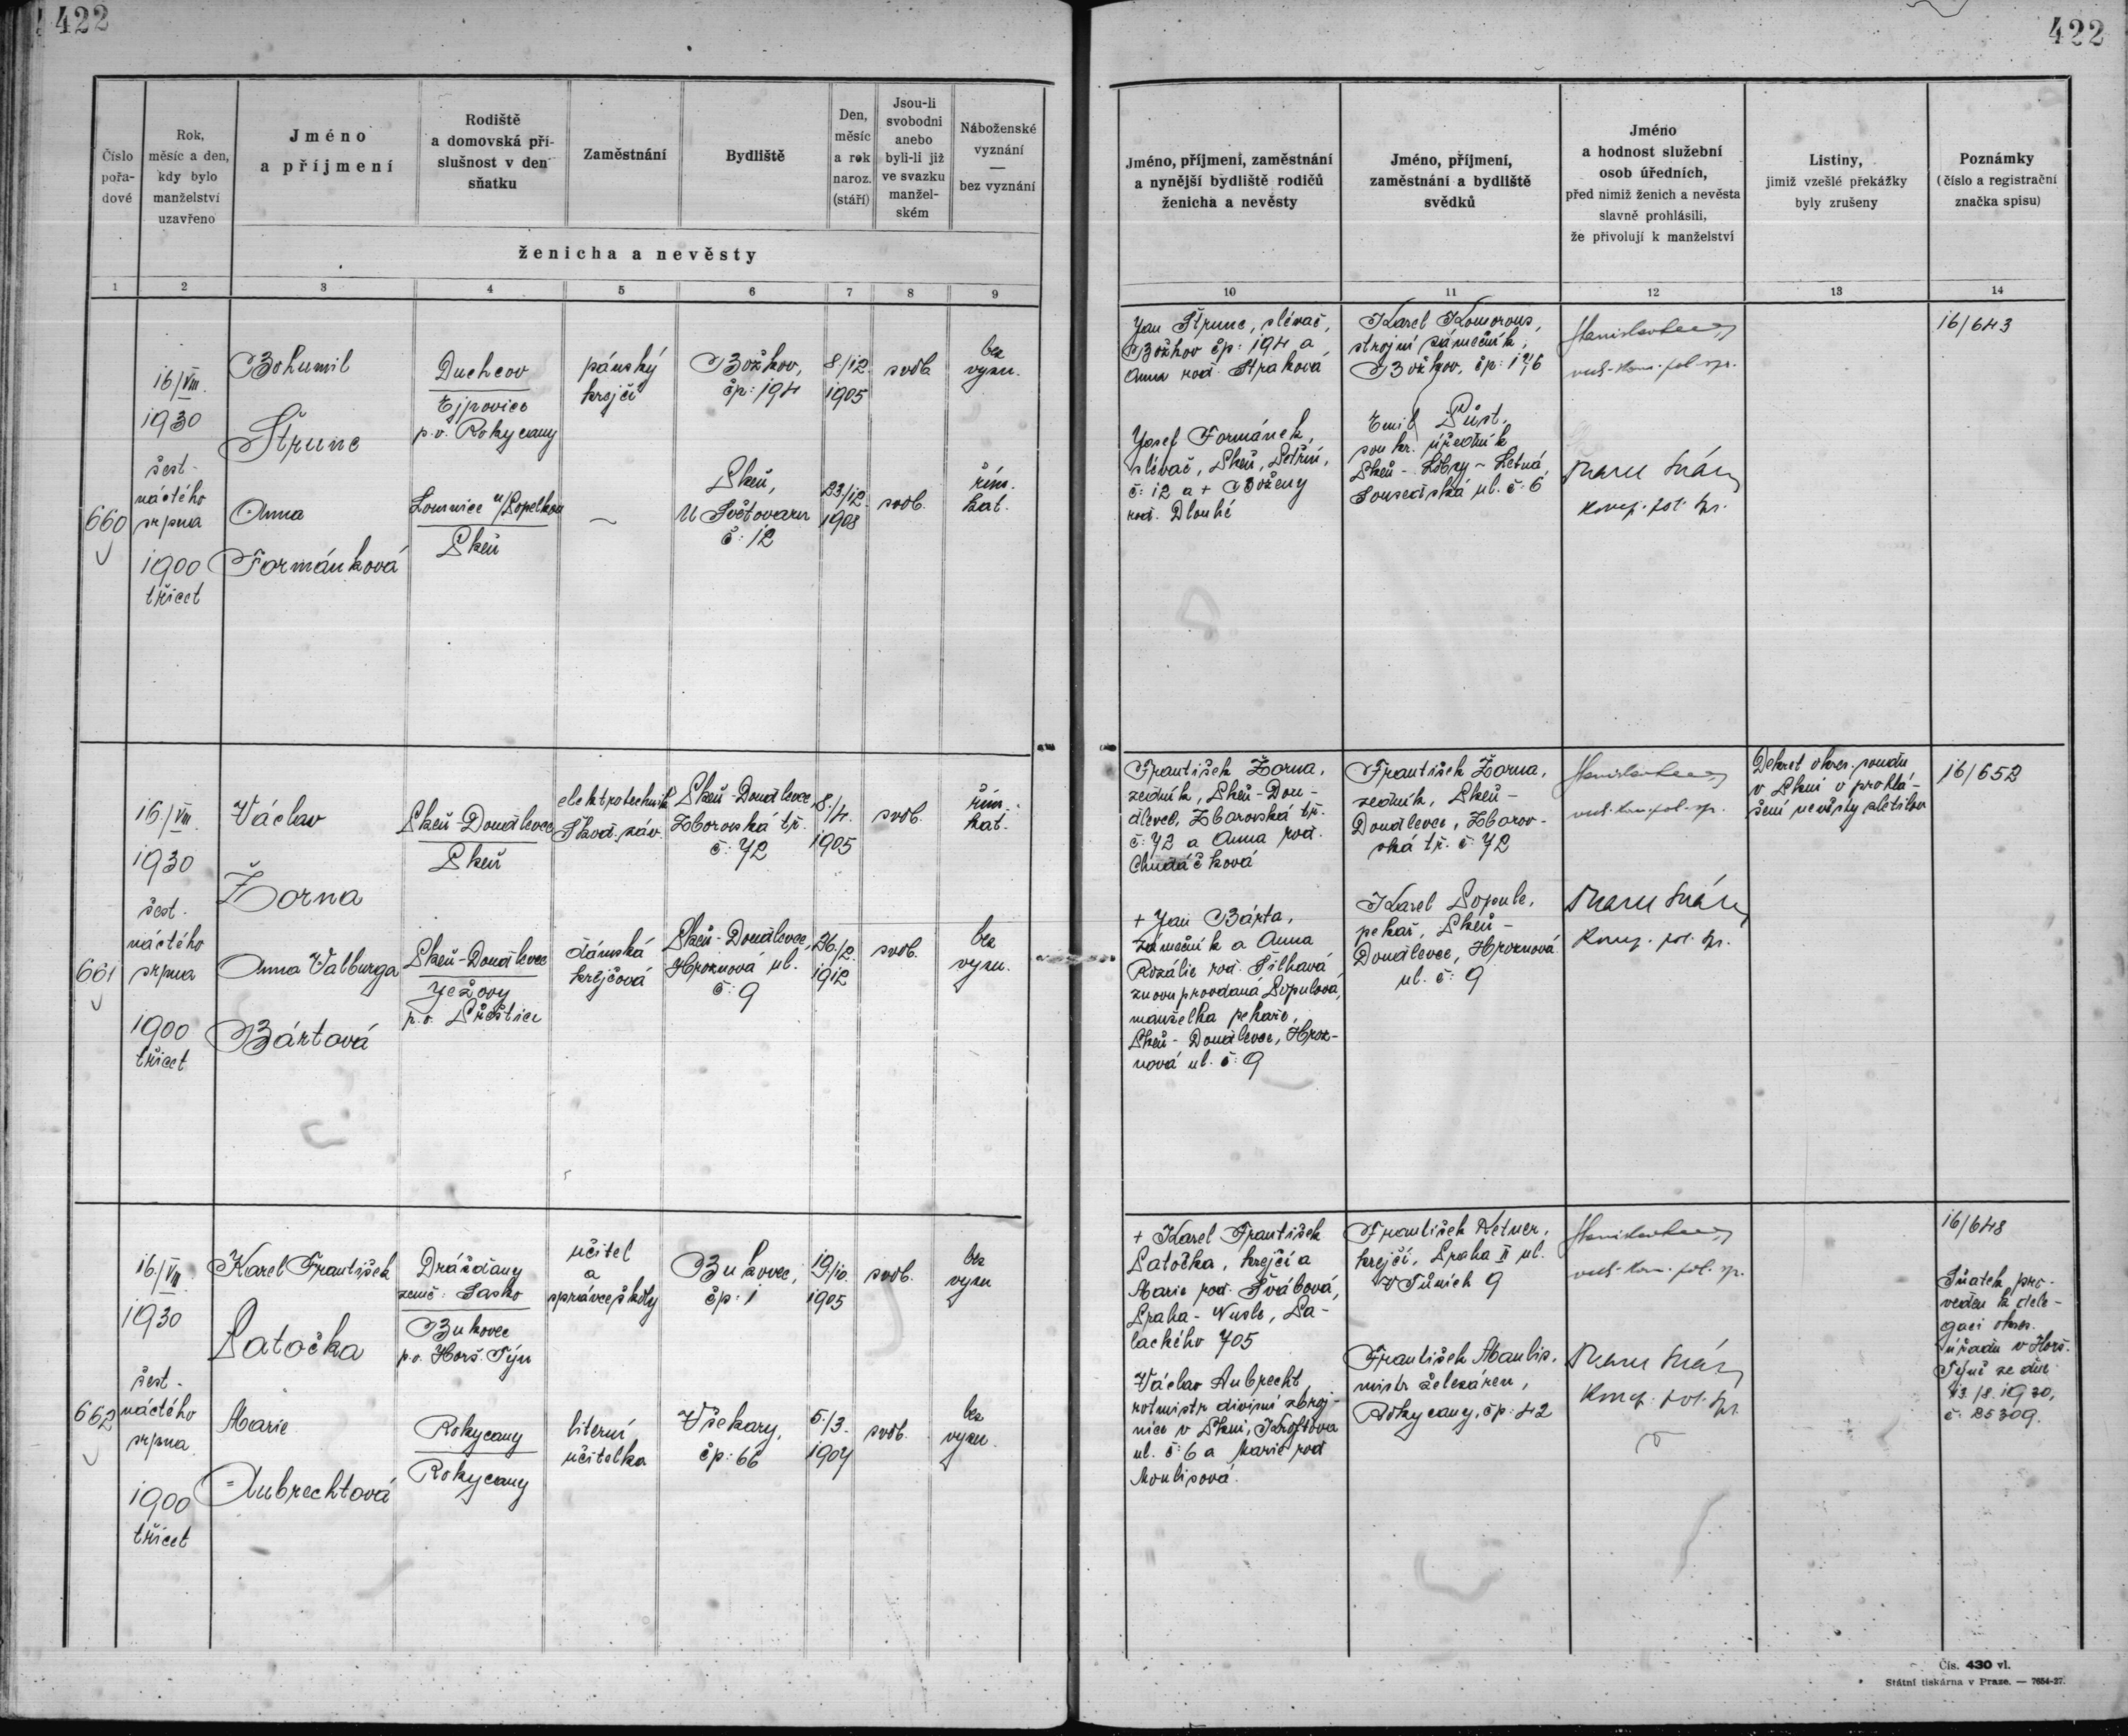 422
422
Číslo
pořa-
dové
Rok,
měsíc a den,
kdy bylo
manželství
uzavřeno
Jméno
a příjmení
Rodiště
a domovská pří-
slušnost v den
sňatku
Zaměstnání
Bydliště
Den,
měsíc
a rok
naroz.
(stáří)
Jsou-li
svobodni
anebo
byli-li již
ve svazku
manžel-
ském
Náboženské
vyznání
—
bez vyznání
ženicha a nevěsty
Jméno, příjmení, zaměstnání
a nynější bydliště rodičů
ženicha a nevěsty
Jméno, příjmení,
zaměstnání a bydliště
svědků
Jméno
a hodnost služební
osob úředních,
před nimiž ženich a nevěsta
slavně prohlásili,
že přivolují k manželství
Listiny,
jimiž vzešlé překážky
byly zrušeny
Poznámky
(číslo a registrační
značka spisu)
1 2 3 4 5 6 7 8 9
10 11 12 13 14
660
16/VIII.
1930
šest-
náctého
srpna
1900
třicet
Bohumil
Štrunc
Duchcov
Ejpovice
p.o. Rokycany
pánský
krejčí
Božkov,
čp: 194
8/12.
1905
svob.
bez
vyzn.
Anna
Formánková
Lomnice n/Popelkou
Plzeň
—
Plzeň,
U Světovaru
č: 12
23/12.
1908
svob.
řím.
kat.
Jan Štrunc, slévač,
Božkov čp: 194 a
Anna roz. Straková
Josef Formánek,
slévač, Plzeň, Petřín,
č: 12 a + Boženy
roz. Dlouhé
Karel Komorous,
strojní zámečník,
Božkov, čp: 176
Emil Půst,
soukr. úředník
Plzeň - Lobzy - Letná,
Sousedská ul. č: 6
pol. spr.
16/643
661
16./VIII.
1930
šest-
náctého
srpna
1900
třicet
Václav
Žorna
Plzeň-Doudlevce
Plzeň
elektrotechnik
Škod. záv.
Plzeň-Doudlevce
Zborovská tř.
č: 72
8./4.
1905
svob.
řím.
kat.
Anna Valburga
Bártová
Plzeň-Doudlevce
Ježovy
p.o. Přeštice
dámská
krejčová
Plzeň-Doudlevce,
Hroznová ul.
č: 9
26./2.
1912
svob.
bez
vyzn.
František Žorna,
zedník, Plzeň-Dou-
dlevce, Zborovská tř.
č: 72 a Anna roz.
Chudáčková
+ Jan Bárta,
zámečník a Anna
Rozálie roz. Šilhavá
znovu provdaná Populová,
manželka pekaře,
Plzeň-Doudlevce, Hroz-
nová ul. č: 9
František Žorna,
zedník, Plzeň-
Doudlevce, Zborov-
ská tř. č: 72
Karel Popule,
pekař, Plzeň-
Doudlevce, Hroznová
ul. č: 9
pol. spr.
Dekret okres. soudu
v Plzni o prohlá-
šení nevěsty zletilou
16/652
662
16./VIII.
1930
šest-
náctého
srpna
1900
třicet
Karel František
Patočka
Drážďany
země: Sasko
Bukovec
p.o. Horš. Týn
učitel
a
správce školy
Bukovec,
čp: 1
19/10.
1905
svob.
bez
vyzn
Marie
Aubrechtová
Rokycany
Rokycany
literní
učitelka
Všekary,
čp: 66
5./3.
1907
svob.
bez
vyzn.
+ Karel František
Patočka, krejčí a
Marie roz. Švábová,
Praha-Nusle, Pa-
lackého 705
Václav Aubrecht
rotmistr divisní zbroj-
nice v Plzni, Kroftova
ul. č: 6 a Marie roz.
Moulisová.
František Netuer,
krejčí, Praha II ul.
V Tůních 9
František Maulis,
mistr železáren,
Rokycany, čp: 42
pol. spr.
16/648
Sňatek pro-
veden k dele-
gaci okres.
úřadu v Horš.
Týně ze dne
13./8. 1930,
č. 25309.
Čís. 430 vl.
Státní tiskárna v Praze. — 7654-27.